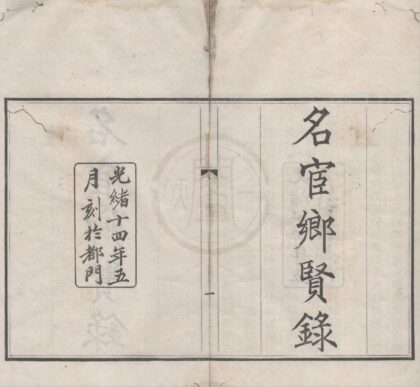 名宦鄉賢錄
光緒十四年五
月刻於都門
一